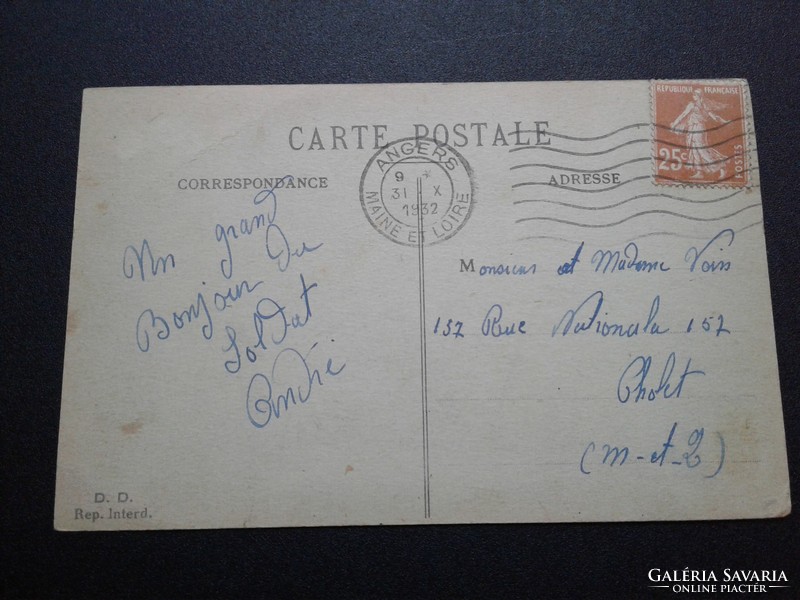 CARTE POSTALE
CORRESPONDANCE
ADRESSE
ANGERS
9 *
31 X
1932
MAINE ET LOIRE
REPUBLIQUE FRANÇAISE
25c
POSTES
Un grand
Bonjour du
Soldat
André
Monsieur et Madame
157 Rue Nationale 157
Cholet
(M-et-L)
D. D.
Rep. Interd.
GALÉRIA SAVARIA
ONLINE PIACTÉR